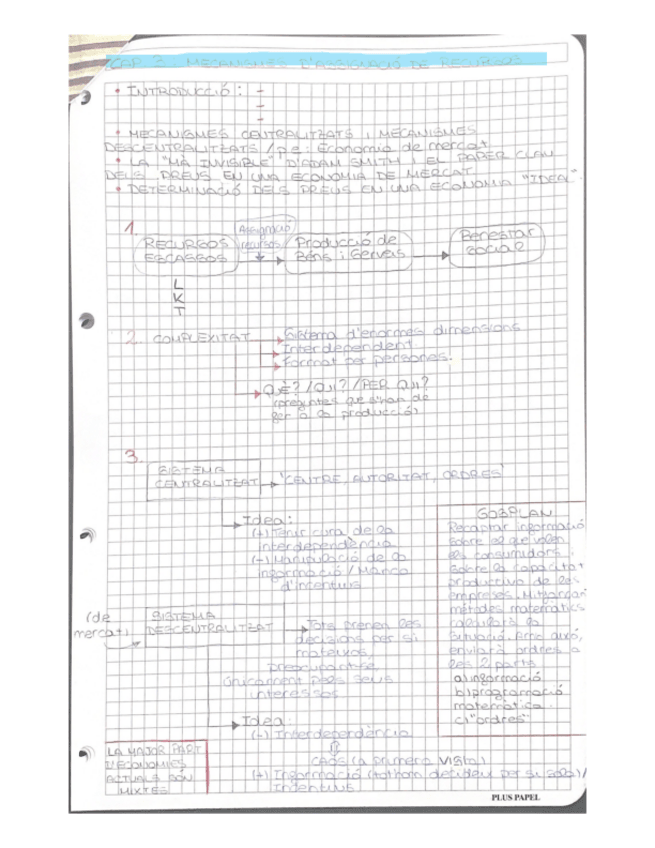 CAP 3. MECANISMES D'ASSIGNACIÓ DE RECURSOS
• INTRODUCCIÓ: -
-
-
• MECANISMES CENTRALITZATS I MECANISMES
DESCENTRALITZATS / p.e: Economia de mercat
• LA "MÀ INVISIBLE" D'ADAM SMITH I EL PAPER CLAU
DELS PREUS EN UNA ECONOMIA DE MERCAT
• DETERMINACIÓ DELS PREUS EN UNA ECONOMIA "IDEAL".
1.
RECURSOS
ESCASSOS
Assignació
recursos
Producció de
Béns i Serveis
Benestar
social
L
K
T
2. COMPLEXITAT
Sistema d'enormes dimensions
Interdependent
Format per persones.
QUÈ? / QUI? / PER QUI?
(preguntes que s'han de
fer a la producció)
3.
SISTEMA
CENTRALITZAT
"CENTRE, AUTORITAT, ORDRES"
Idea:
(+) Tenir cura de la
interdependència
(-) Manipulació de la
informació / Manca
d'incentius
GOSPLAN
Recaptar informació
sobre el que volen
els consumidors.
Sobre la capacitat
productiva de les
empreses. Mitjançant
mètodes matemàtics
calcularà la
situació. Amb això,
enviarà ordres a
les 2 parts
a) informació
b) programació
matemàtica
c) "ordres"
(de
mercat)
SISTEMA
DESCENTRALITZAT
Tots prenen les
decisions per si
mateixos,
preocupant-se
únicament pels seus
interessos
Idea:
(-) Interdependència
CAOS (a primera vista)
(+) Informació (tothom decideix per si sol) /
Incentius
LA MAJOR PART
D'ECONOMIES
ACTUALS SÓN
MIXTES
PLUS PAPEL